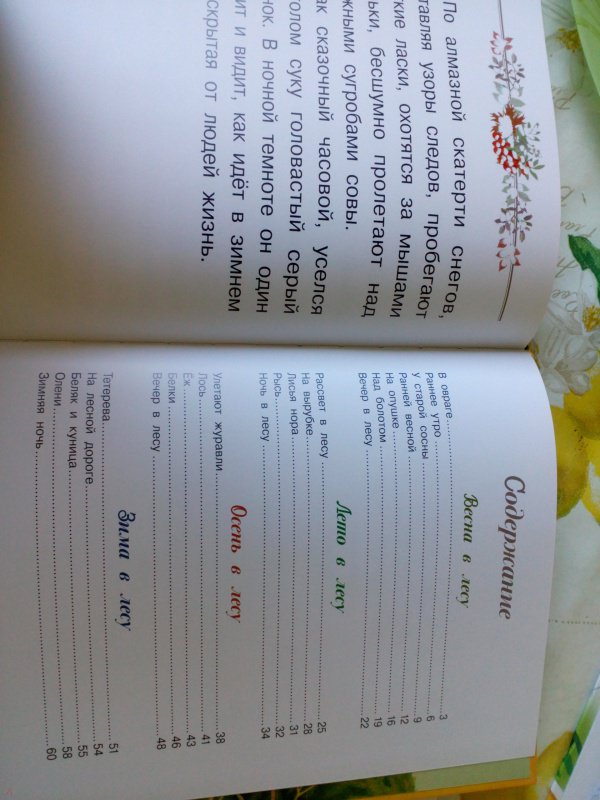 По алмазной скатерти снегов,
тавляя узоры следов, пробегают
гкие ласки, охотятся за мышами
ьки, бесшумно пролетают над
жными сугробами совы.
ак сказочный часовой, уселся
голом суку головастый серый
нок. В ночной темноте он один
ит и видит, как идёт в зимнем
скрытая от людей жизнь.
Содержание
Весна в лесу
В овраге 3
Раннее утро 6
У старой сосны 9
Ранней весной 12
На опушке 16
Над болотом 19
Вечер в лесу 22
Лето в лесу
Рассвет в лесу 25
На вырубке 28
Лисья нора 31
Рысь 32
Ночь в лесу 34
Осень в лесу
Улетают журавли 38
Лось 41
Ёж 43
Белки 46
Вечер в лесу 48
Зима в лесу
Тетерева 51
На лесной дороге 54
Беляк и куница 55
Олени 58
Зимняя ночь 60